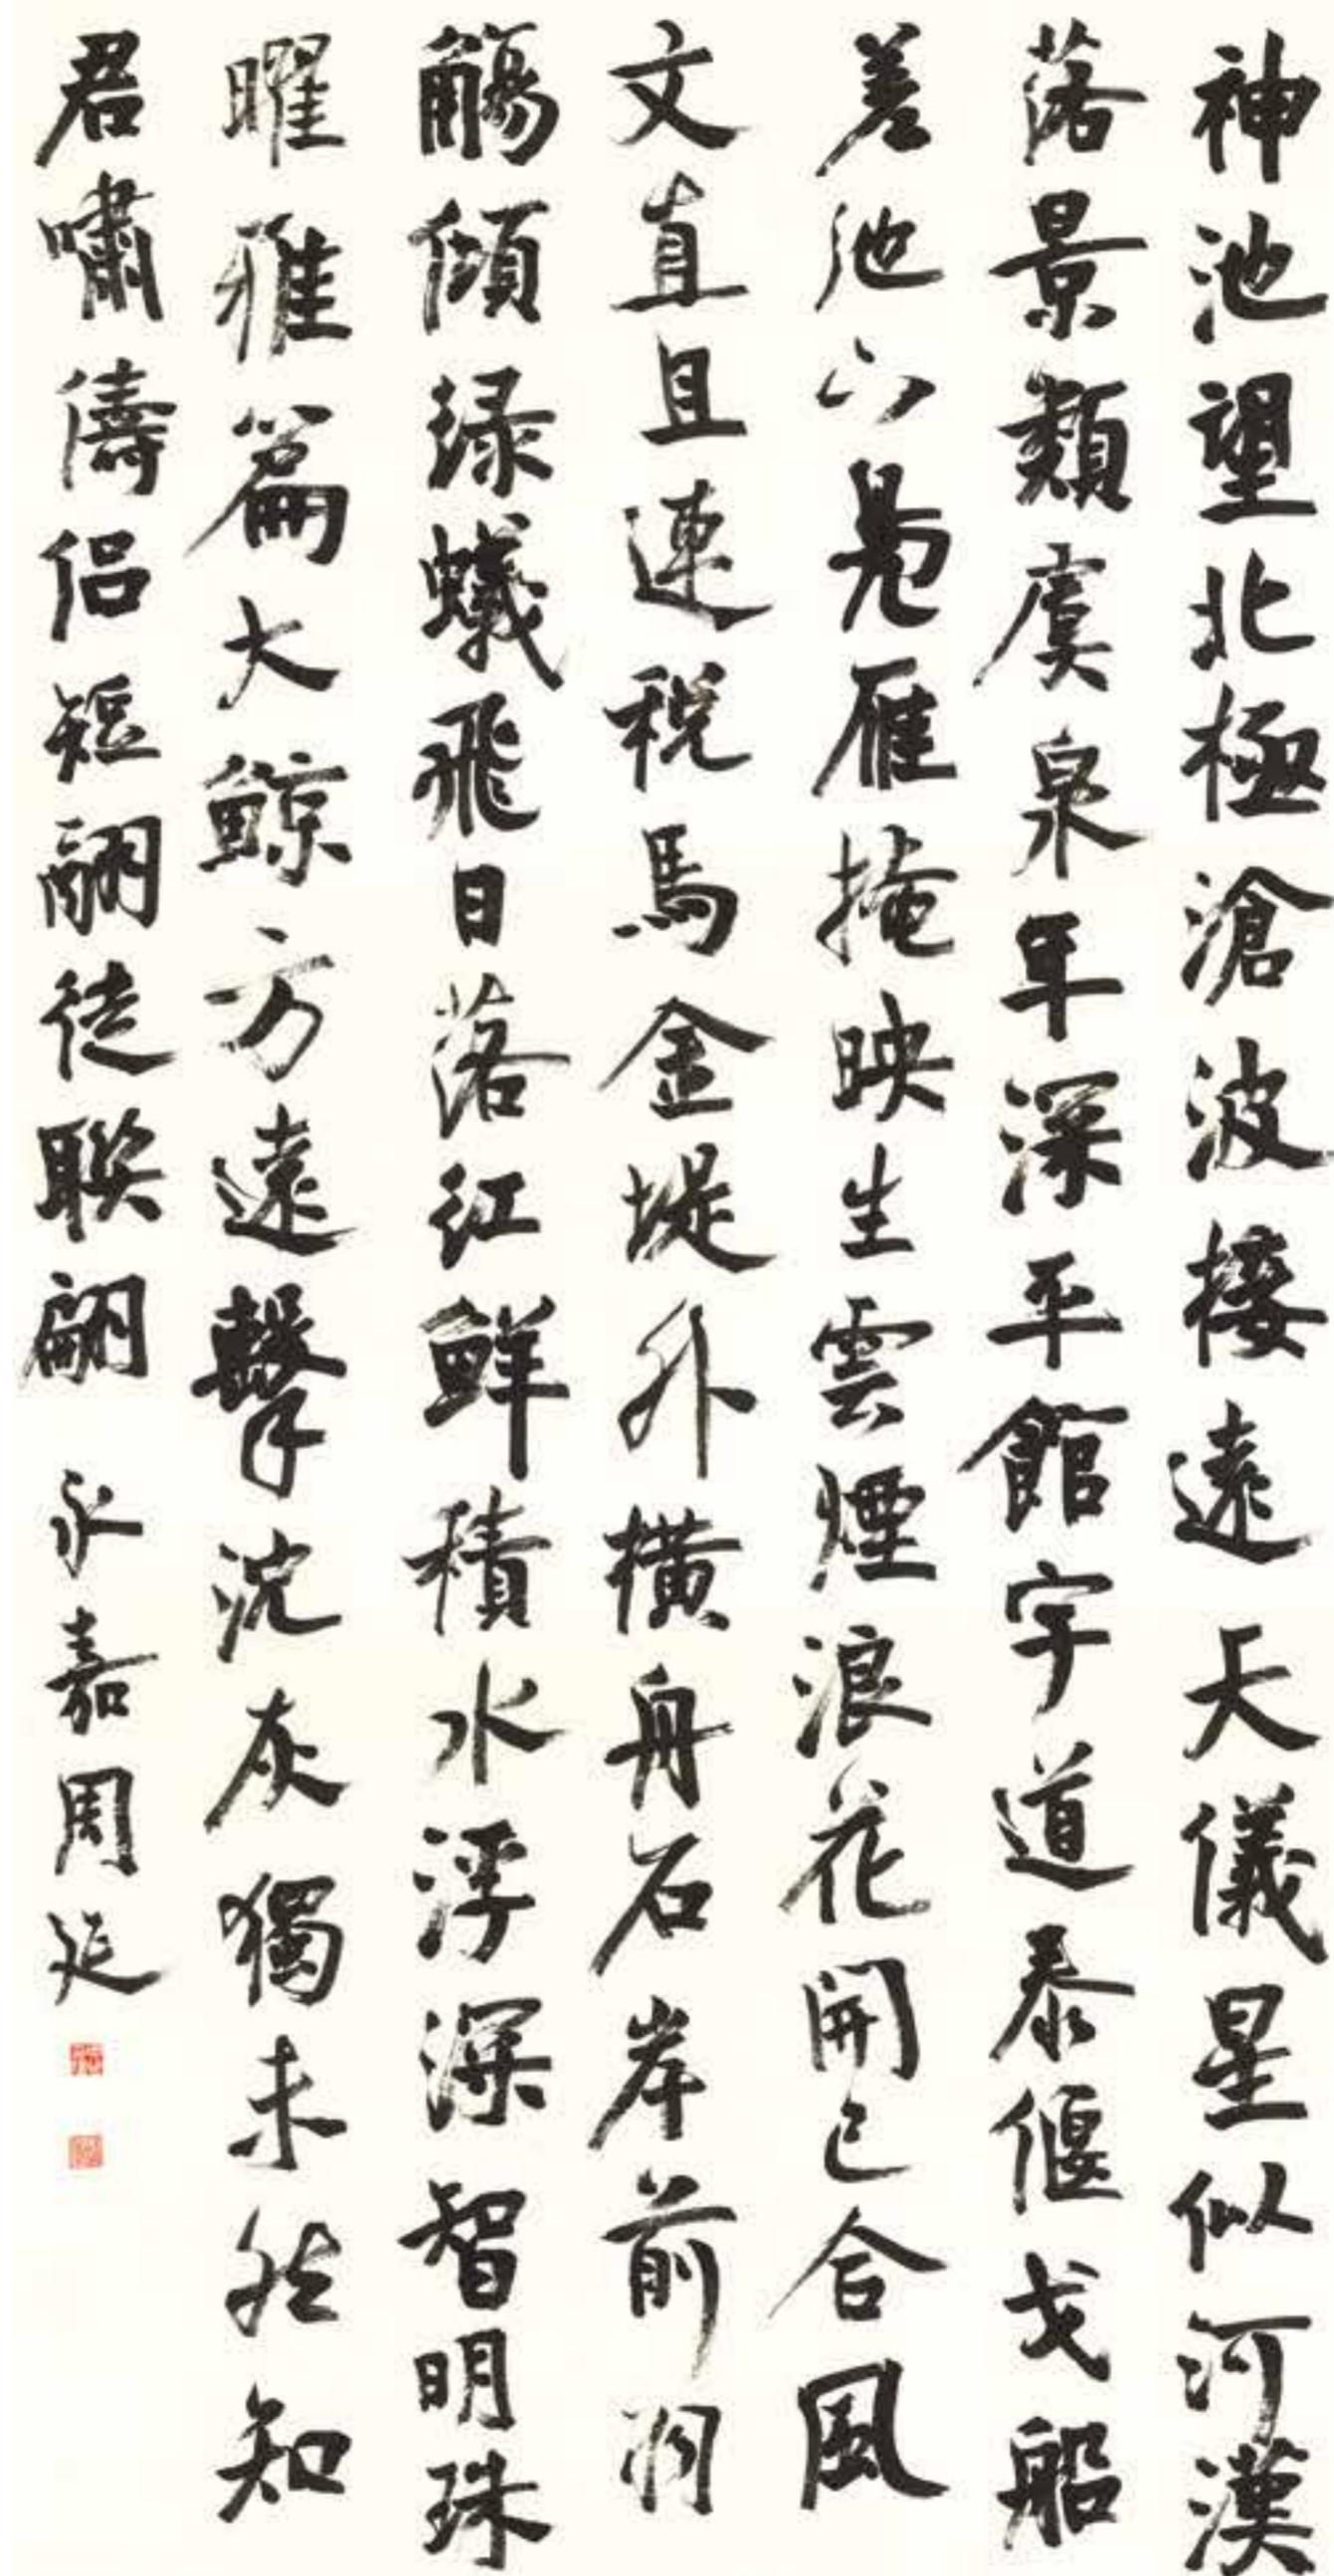 神池望北極滄波接遠天儀星似河漢
落景類虞泉年深平館宇道泰偃戈船
差池下鳧雁掩映生雲煙浪花開已合風
文直且連税馬金堤外橫舟石岸前羽
觴傾緑蟻飛日落紅鮮積水浮深智明珠
曜雅篇大鯨方遠擊沈灰獨未然知
君嘯儔侶短翮徒聯翩 永嘉周延